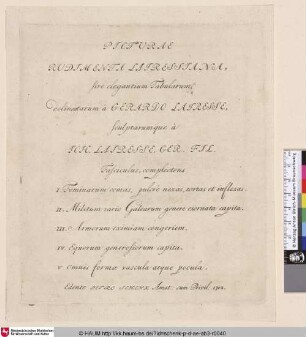 PICTURAE
RUDIMENTA LAIRESSIANA,
sive elegantium Tabularum,
delineatarum à GERARDO LAIRESSE,
sculptarumque à
IOH. LAIRESSE, GER. FIL.
Fasciculus, complectens
I. Feminarum comas, pulcrè nexas, tortas et inflexas.
II. Militum vario Galearum genere exornata capita.
III. Armorum eximiam congeriem.
IV. Equorum generosiorum capita.
V. Omnis formæ vascula atque pocula.
Amst. cum Privil.
© HAUM http://kk.haum-bs.de/?id=schenk-p-d-ae-ab3-r0040